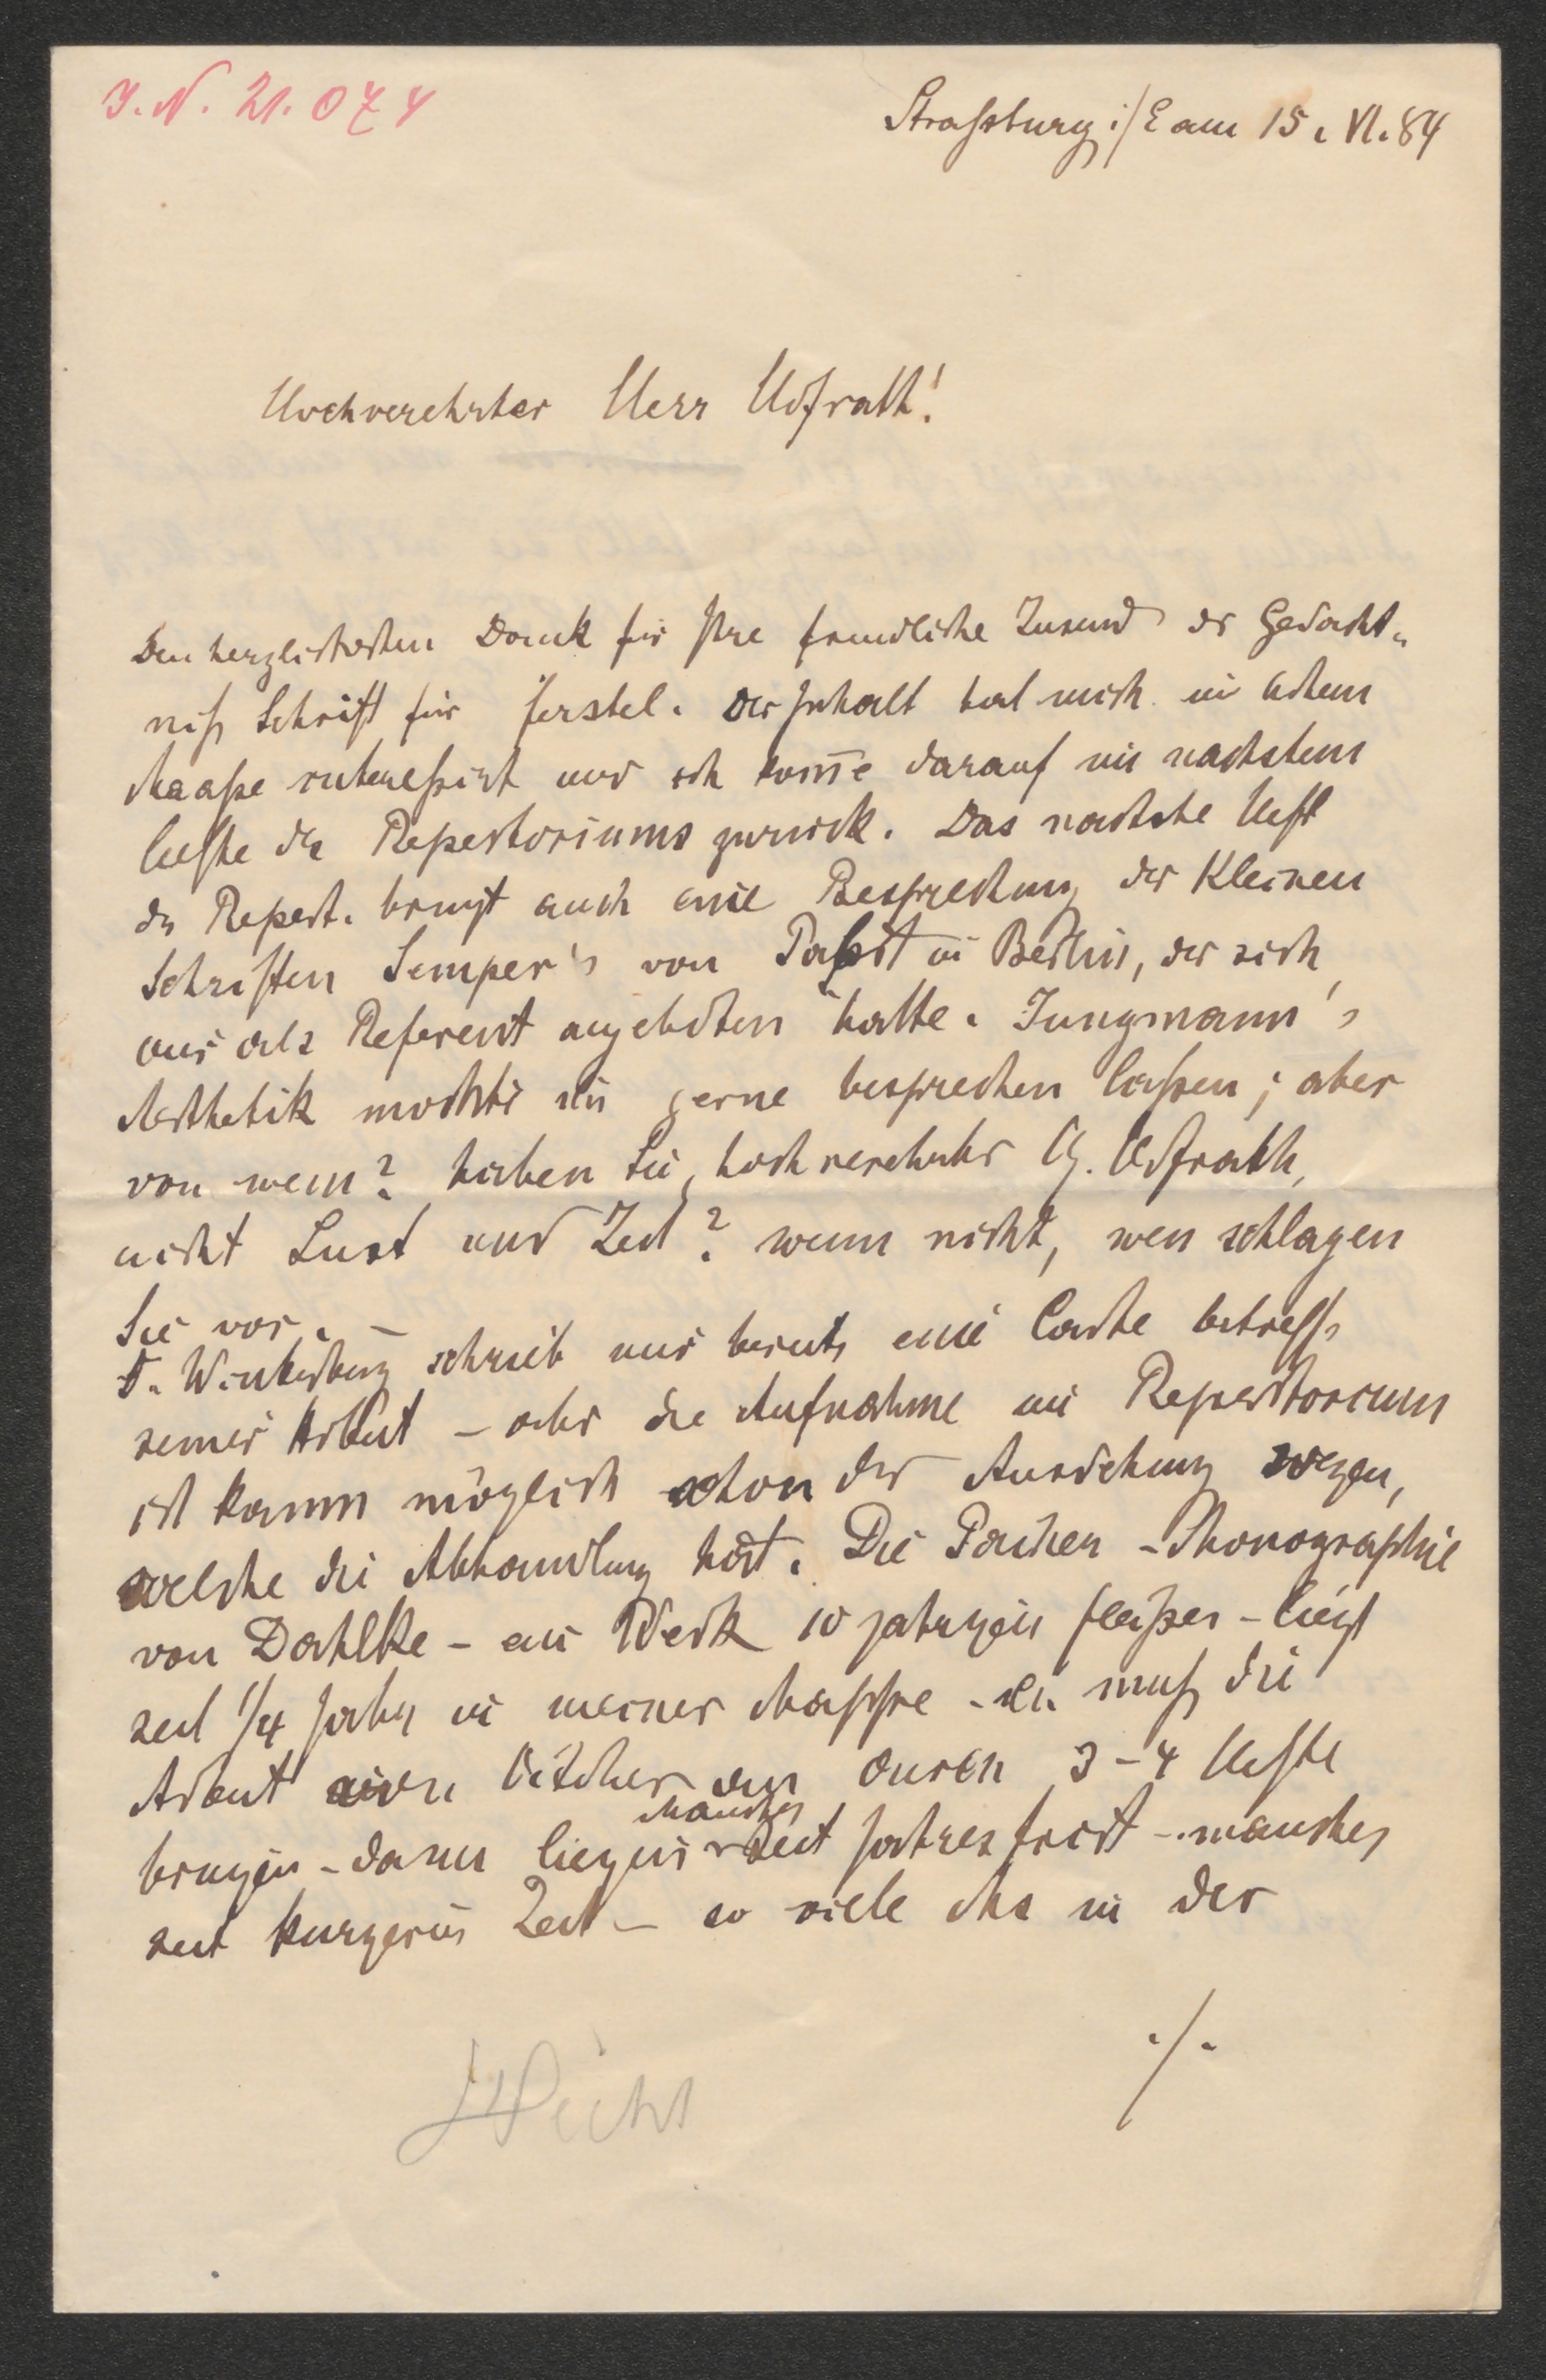 I. N. 21.074
Strassburg i/E am 15. VI. 84
Hochverehrter Herr Hofrath!
Den herzlichsten Dank für Ihre freundliche Zusend der Gedächt-
niß Schrift für Ferstel. Der Inhalt hat mich in hohem
Maaße interessirt und ich komme darauf im nächsten
Hefte des Repertoriums zurück. Das nächste Heft
des Repert. bringt auch eine Besprechung der Kleinen
Schriften Semper's von Pabst in Berlin, der sich
mir als Referent angeboten hatte. Jungmann's
Aesthetik möchte ich gerne besprechen lassen; aber
von wem? haben Sie, hochverehrter H. Hofrath,
nicht Lust und Zeit? wenn nicht, wen schlagen
Sie vor. –
schrieb mir bereits eine Carte betreffs
seiner Arbeit – aber die Aufnahme im Repertorium
ist kaum möglich schon der Ausdehnung wegen,
welche die Abhandlung hat. Die Pacher-Monographie
von Dahlke – ein Werk 10 jährigen Fleißes – liegt
seit 1/4 Jahr in meiner Mappe – ich muß die
Arbeit durch 3–4 Hefte
bringen – dann liegen Manches seit Jahresfrist – manches
seit kurzerer Zeit – so viele Ms in der
./.